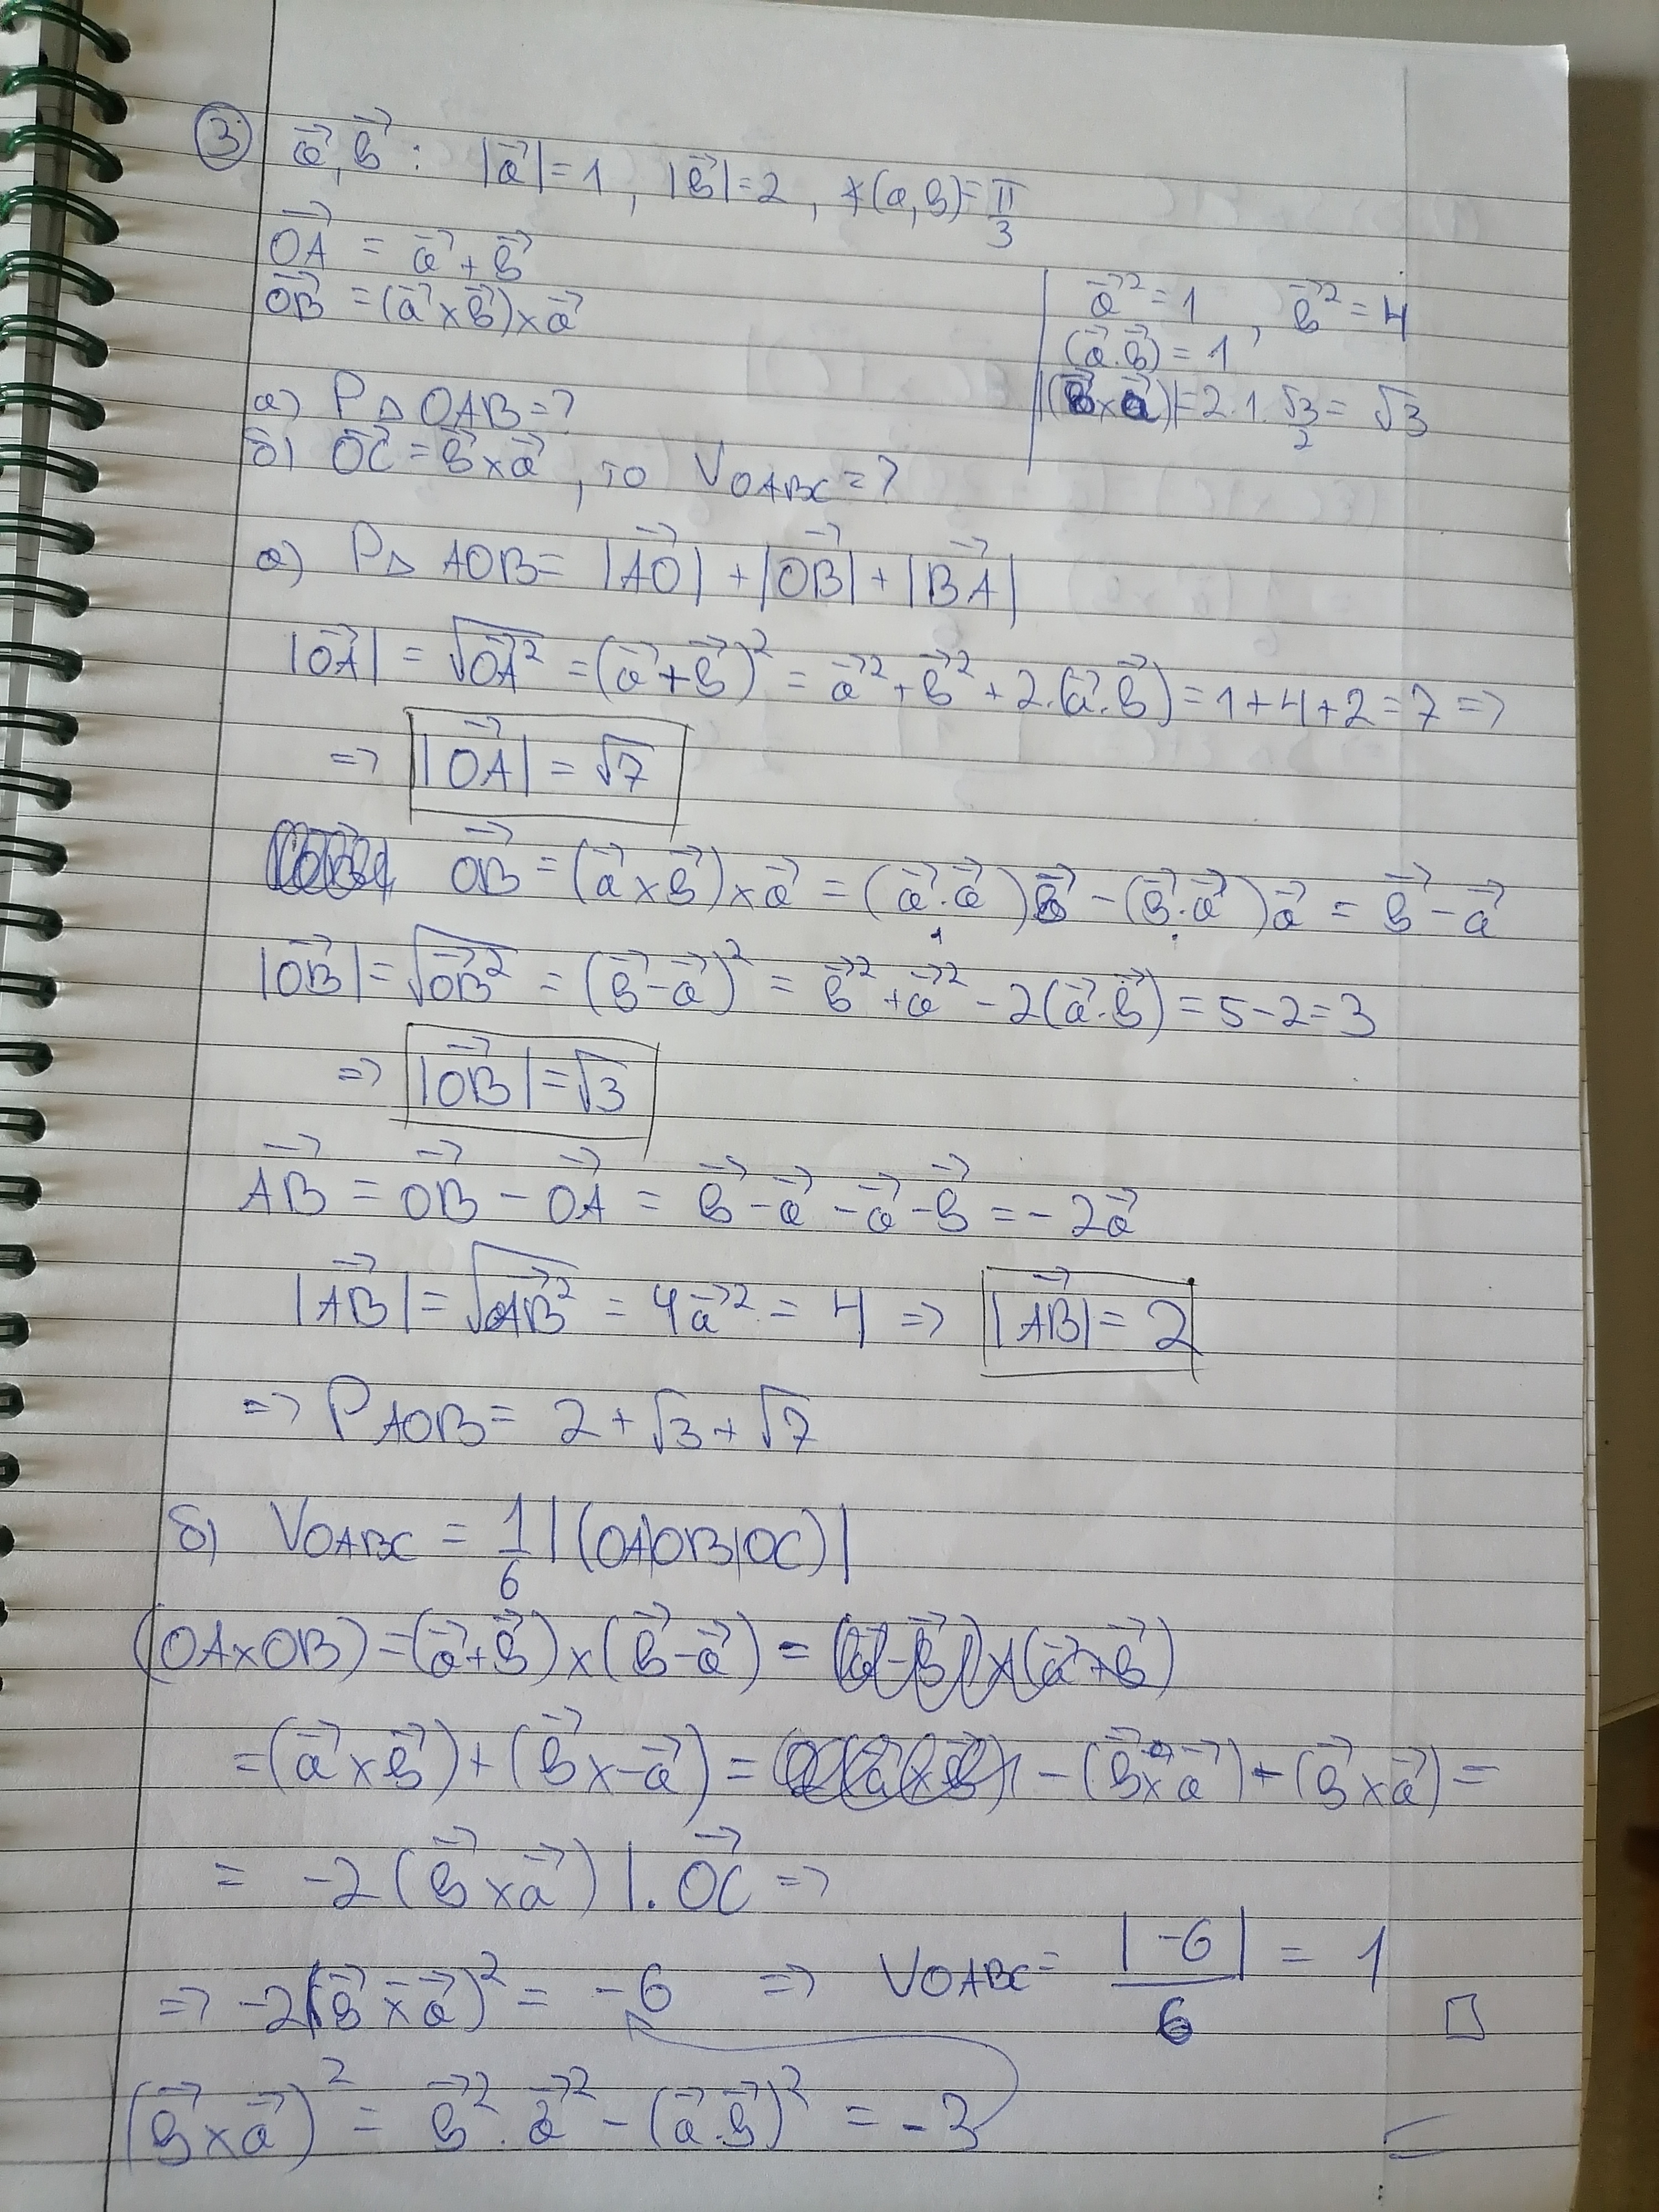 ③ a⃗, b⃗ : |a⃗| = 1, |b⃗| = 2, ∢(a, b) = π/3
OA⃗ = a⃗ + b⃗
OB⃗ = (a⃗ × b⃗) × a⃗
a⃗² = 1, b⃗² = 4
(a⃗ . b⃗) = 1
|(b⃗ × a⃗)| = 2.1.√3/2 = √3
а) P△ OAB = ?
б) OC⃗ = b⃗ × a⃗, то V OABC = ?
а) P△ AOB = |AO⃗| + |OB⃗| + |BA⃗|
|OA⃗| = √OA⃗² = (a⃗ + b⃗)² = a⃗² + b⃗² + 2.(a⃗ . b⃗) = 1 + 4 + 2 = 7 =>
=> |OA⃗| = √7
OB⃗ = (a⃗ × b⃗) × a⃗ = (a⃗ . a⃗) b⃗ - (b⃗ . a⃗) a⃗ = b⃗ - a⃗
|OB⃗| = √OB⃗² = (b⃗ - a⃗)² = b⃗² + a⃗² - 2(a⃗ . b⃗) = 5 - 2 = 3
=> |OB⃗| = √3
AB⃗ = OB⃗ - OA⃗ = b⃗ - a⃗ - a⃗ - b⃗ = - 2a⃗
|AB⃗| = √AB⃗² = 4a⃗² = 4 => |AB⃗| = 2
=> P AOB = 2 + √3 + √7
б) V OABC = 1/6 |(OA|OB|OC)|
(OA × OB) = (a⃗ + b⃗) × (b⃗ - a⃗) =
= (a⃗ × b⃗) + (b⃗ × -a⃗) = - (b⃗ × a⃗) - (b⃗ × a⃗) =
= -2 (b⃗ × a⃗) |. OC⃗ =>
=> -2(b⃗ × a⃗)² = -6 => V OABC = |-6|/6 = 1 □
(b⃗ × a⃗)² = b⃗² . a⃗² - (a⃗ . b⃗)² = -3